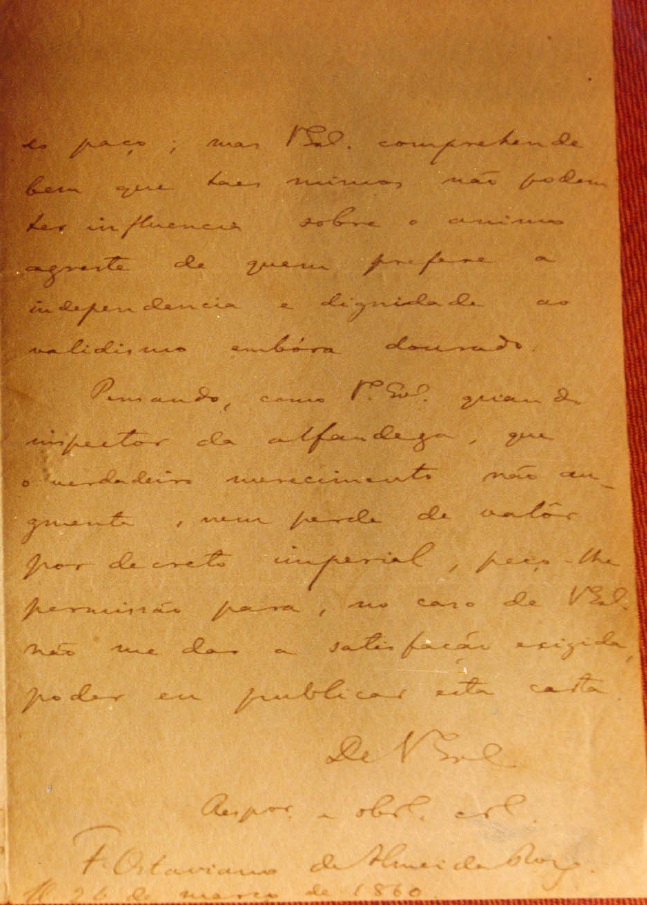 do paço ; mas V Exª. comprehende
bem que taes mimos não podem
ter influencia sobre o animo
agreste de quem prefere a
independencia e dignidade ao
validismo embóra dourado.
Pensando, como Vª. Exª. quando
inspector da alfandega, que
o verdadeiro merecimento não au-
gmenta, nem perde de valôr
por decreto imperial, peço-lhe
permissão para, no caso de V Exª.
não me dar a satisfação exigida,
poder eu publicar esta carta.
De V Exª
Respor. e obrº. crº.
F. Octaviano de Almeida Rosa.
26 de março de 1860